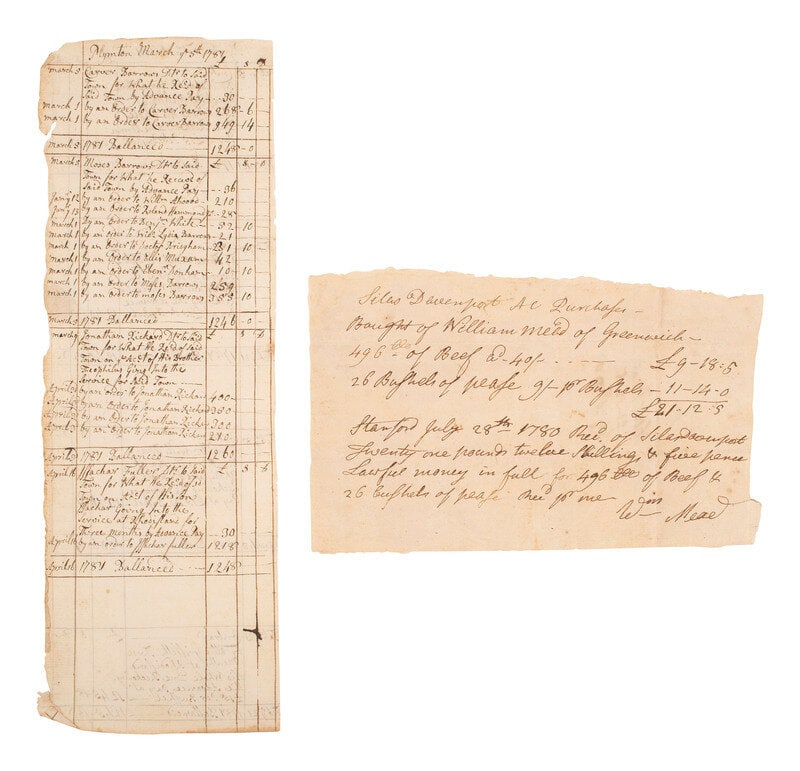 Plymton March ye 5th 1781
£ s d
march 5 Carver Barrows Dtr to Said
Town for What he Recd of
Said Town by Advance Pay -- 30 -
march 1 by an Order to Carver Barrows 268 - 6
march 1 by an Order to Carver Barrows 949 - 14
march 5 1781 Ballanced 1248 - 0
march 5 Moses Barrows Dtr to Said £ s d
Town for What he Received of
Said Town by Advance Pay -- 36
Janry 12 by an Order to Willm Atwood 210
Janry 13 by an Order to Roland Hammond 28
march 1 By an Order to Benjn White -- 52 10
march 1 by an order to Wido Lydia Barrows - 21
march 1 by an Order to Doctor Briegham 231 10
march 1 by an Order to Ellis Maxam 42
march 1 by an Order to Ebenr Donham 10 10
march 1 by an Order to Moses Barrows 259
march 1 by an Order to moses Barrows 355 10
march 5 1781 Ballanced 1246 - 0
march 9 Jonathan Richard Dtr to Said £ s d
Town for What he Recd of said
Town on ye Act of His Brother
Theophilus Going Into the
Service for Said Town
April by an order to Jonathan Richard 400
April by an Order to Jonathan Richard 350
April by an Order to Jonathan Richard 300
April by an Order to Jonathan Richard 210
April 1781 Ballanced 1260
April 16 Issachar Fullers Dtr to Said £ s d
Town for What he Recd of sd
Town on Act of His Son
Issachar Going Into the
Service at Rhode Island for
Three months by Advance Pay -- 30
April 16 by an order to Issachar fullers 1218
April 16 1781 Ballanced 1248
Silas Davenport AC Purchaser -
Bought of William Mead of Greenwich -
496 of Beef at 40/- £9-18-5
26 Bushels of pease 9/- pr Bushels - 11-14-0
£21-12-5
Stanford July 28th 1780 Recd of Silas Davenport
Twenty one pounds twelve Shillings & five pence
Lawful money in full for 496 of Beef &
26 bushels of pease Recd pr me
Wm Mead